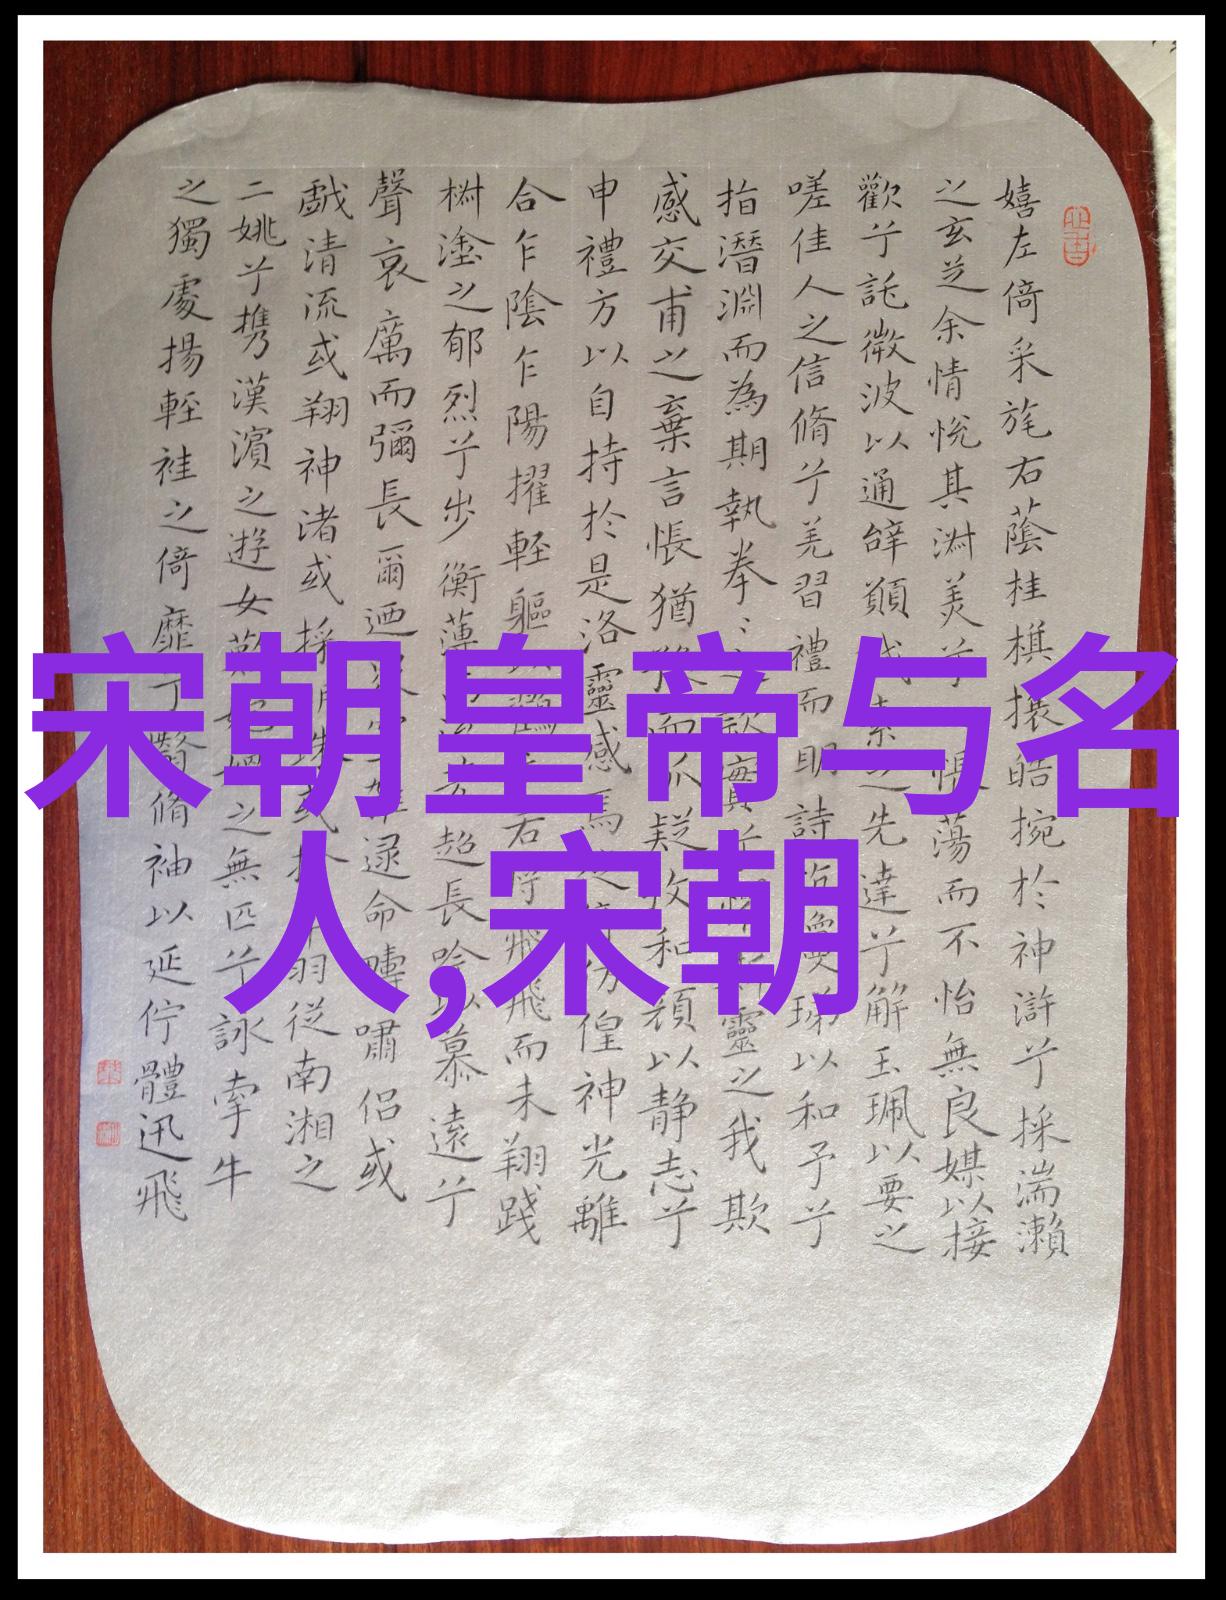 宋朝皇帝与名
人,宋朝
嬉左倚采旄右蔭桂棋攘皓捥於神滸兮採湍瀨
之玄芝余情悅其淋美兮 蕩而不怡無良媒以接
歡兮託微波以通辭願 先達兮解玉珮以要之
嗟佳人之信脩兮羌習禮而明詩 以和予兮
指潛淵而為期執拳 靈之我欺
感交甫之棄言悵猶 而狐疑收和顏以静志兮
申禮方以自持於是洛靈感焉 徨神光離
合乍陰乍陽擢輕軀 飛而未翔踐
樹塗之郁烈兮步衡薄 超長吟以慕遠兮
聲哀厲而彌長爾迺 逯命疇嘯侣或
戲清流或翔神渚或採 羽從南湘之
二姚兮携漢濱之遊女 之無匹兮詠牽牛
之獨處揚輕袿之倚靡 脩袖以延佇體迅飛